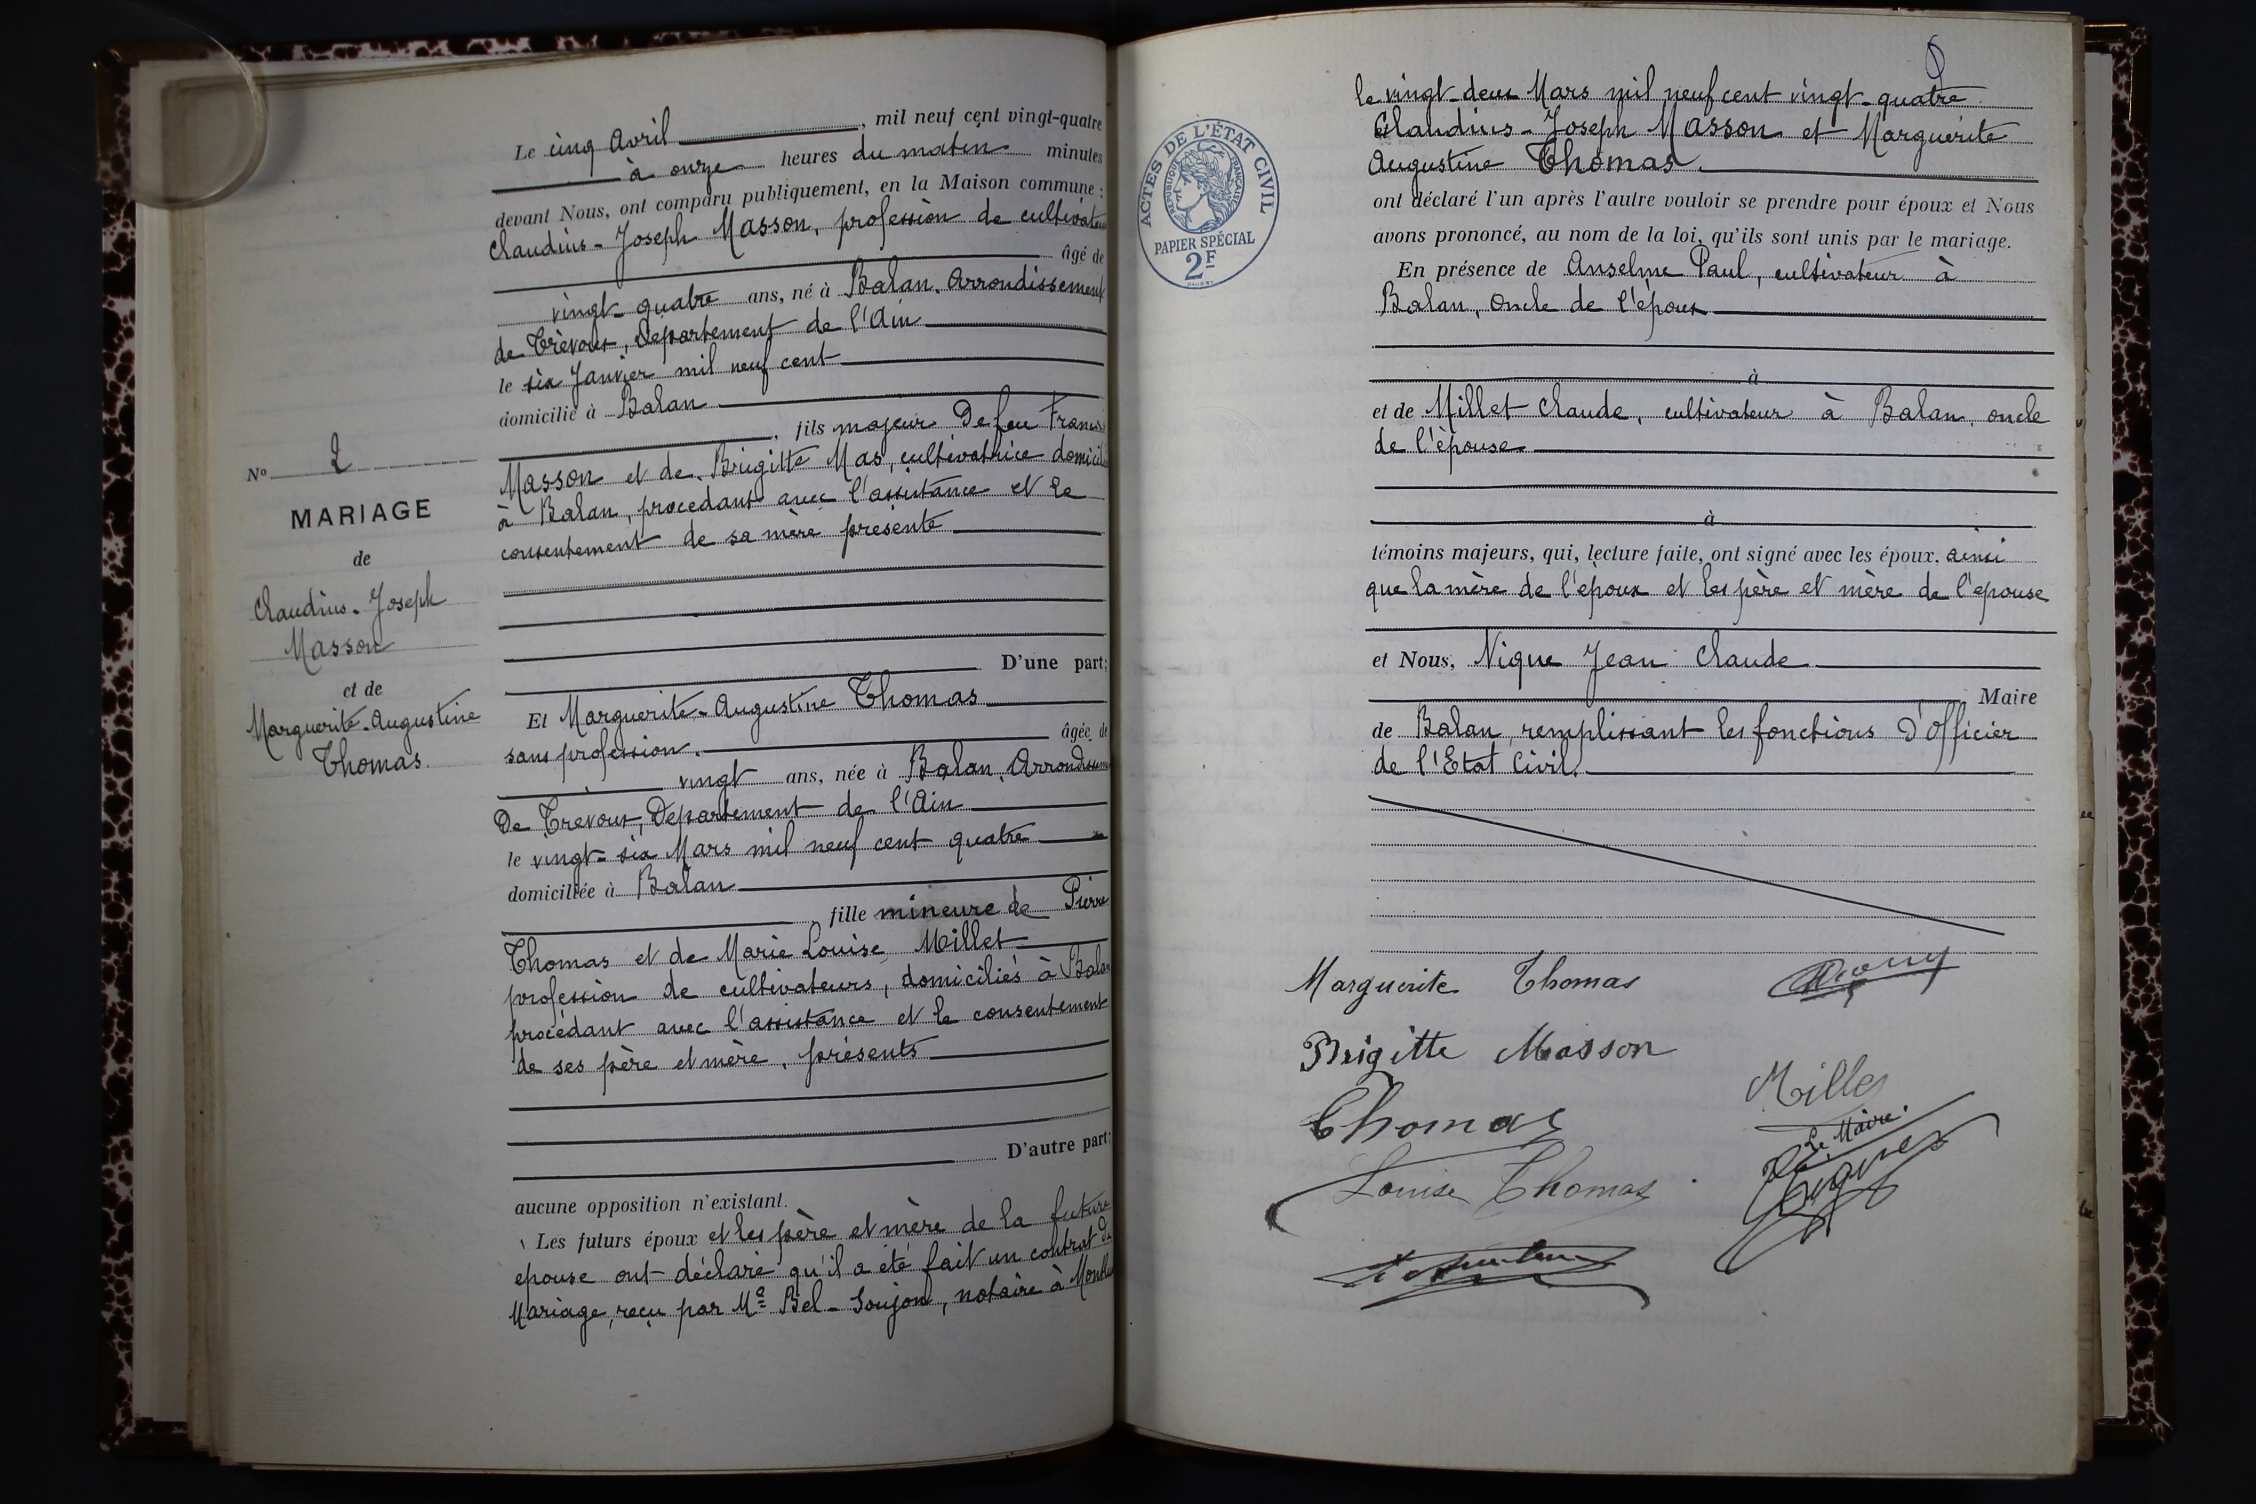 Le cinq Avril, mil neuf cent vingt-quatre
à onze heures du matin minutes
devant Nous, ont comparu publiquement, en la Maison commune :
Claudius-Joseph Masson, profession de cultivateur
âgé de
vingt-quatre ans, né à Balan, Arrondissement
de Trévoux, Département de l'Ain
le six Janvier mil neuf cent
domicilié à Balan
, fils majeur De feu Francis
Masson et de Brigitte Mas, cultivatrice domicili
à Balan, procédant avec l'assistance et le
consentement de sa mère présente
D'une part;
Et Marguerite-Augustine Thomas
sans profession. âgée de
vingt ans, née à Balan, Arrondissem
De Trévoux, Département de l'Ain
le vingt-six Mars mil neuf cent quatre
domiciliée à Balan
, fille mineure de Pierre
Thomas et de Marie Louise Millet
profession de cultivateurs, domiciliés à Balan
procédant avec l'assistance et le consentement
de ses père et mère, présents
D'autre part;
aucune opposition n'existant.
Les futurs époux et les père et mère de la future
epouse ont déclaré qu'il a été fait un contrat de
Mariage, reçu par Me Bel-Soujon, notaire à Montlu
No 2
MARIAGE
de
Claudius-Joseph
Masson
et de
Marguerite-Augustine
Thomas.
ACTES DE L'ÉTAT CIVIL
RÉPUBLIQUE FRANÇAISE
PAPIER SPÉCIAL
2F
le vingt-deux Mars mil neuf cent vingt-quatre
Claudius-Joseph Masson et Marguerite
Augustine Thomas.
ont déclaré l'un après l'autre vouloir se prendre pour époux et Nous
avons prononcé, au nom de la loi, qu'ils sont unis par le mariage.
En présence de Anselme Paul, cultivateur à
Balan, Oncle de l'époux
à
et de Millet Claude, cultivateur à Balan, oncle
de l'épouse
à
témoins majeurs, qui, lecture faite, ont signé avec les époux. ainsi
que la mère de l'époux et les père et mère de l'epouse
et Nous, Nique Jean Claude
Maire
de Balan, remplissant les fonctions D'officier
de l'Etat Civil.
Marguerite Thomas
Brigitte Masson
Millet
Thomas
Le Maire.
Louise Thomas